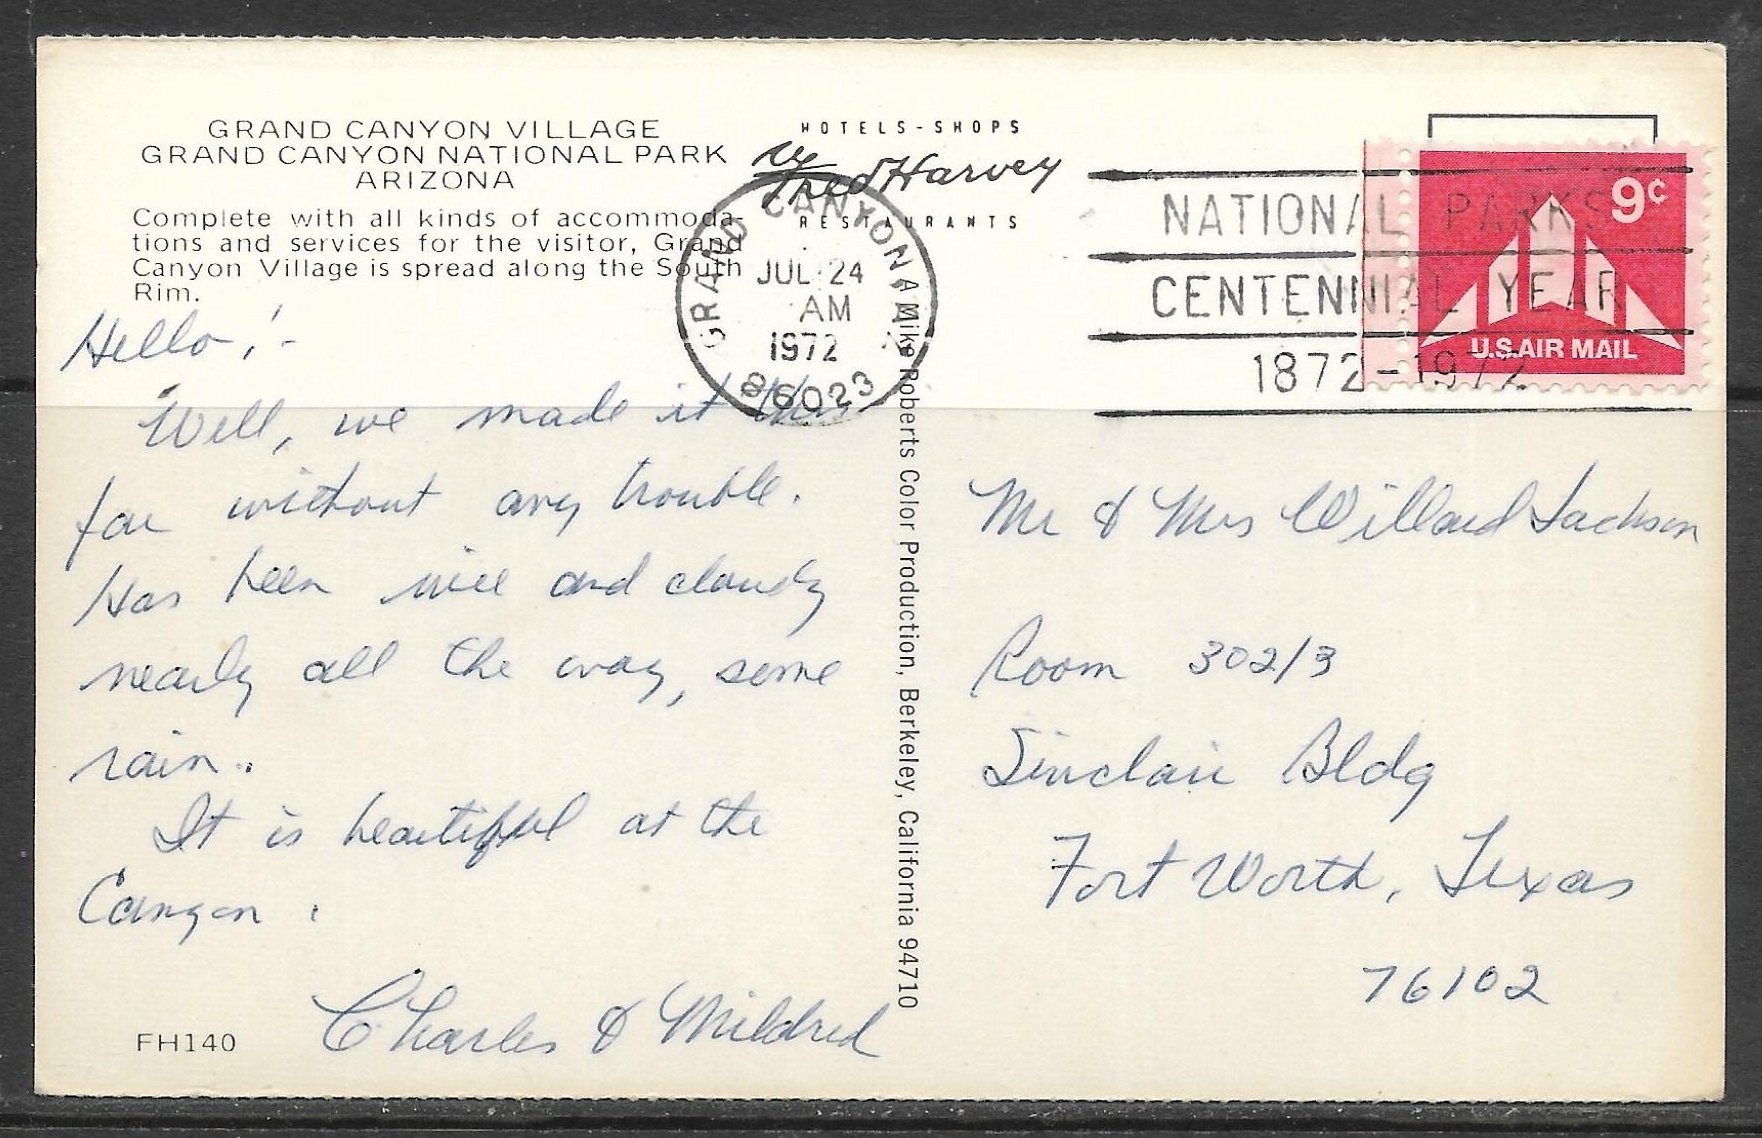 GRAND CANYON VILLAGE
GRAND CANYON NATIONAL PARK
ARIZONA
Complete with all kinds of accommoda-
tions and services for the visitor, Grand
Canyon Village is spread along the South
Rim.
HOTELS-SHOPS
by
Fred Harvey
RESTAURANTS
GRAND CANYON, AZ
JUL 24
AM
1972
86023
NATIONAL PARKS
CENTENNIAL YEAR
1872-1972
9c
U.S. AIR MAIL
Hello!-
Well, we made it this
far without any trouble.
Has been nice and cloudy
nearly all the way, some
rain.
It is beautiful at the
Canyon.
Charles & Mildred
FH140
A Mike Roberts Color Production, Berkeley, California 94710
Mr & Mrs Willard Jackson
Room 302/3
Sinclair Bldg
Fort Worth, Texas
76102